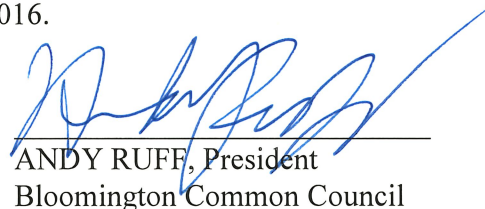 016.
ANDY RUFF, President
Bloomington Common Council